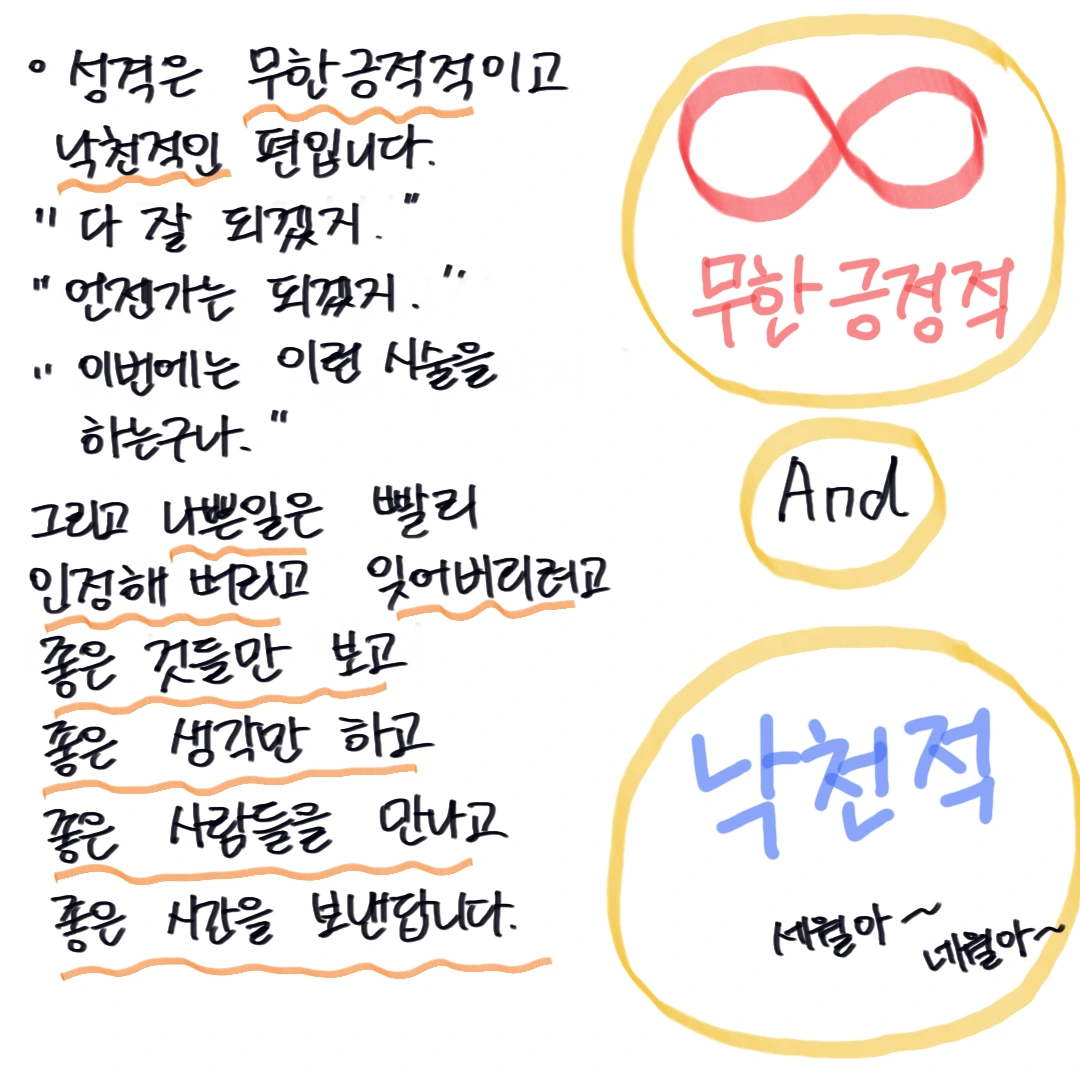 ∘ 성격은 무한긍적적이고
낙천적인 편입니다.
"다 잘 되겠지."
"언젠가는 되겠지."
"이번에는 이런 시술을
하는구나."
그리고 나쁜일은 빨리
인정해 버리고 잊어버리려고
좋은 것들만 보고
좋은 생각만 하고
좋은 사람들을 만나고
좋은 시간을 보낸답니다.
∞
무한긍정적
And
낙천적
세월아~
네월아~